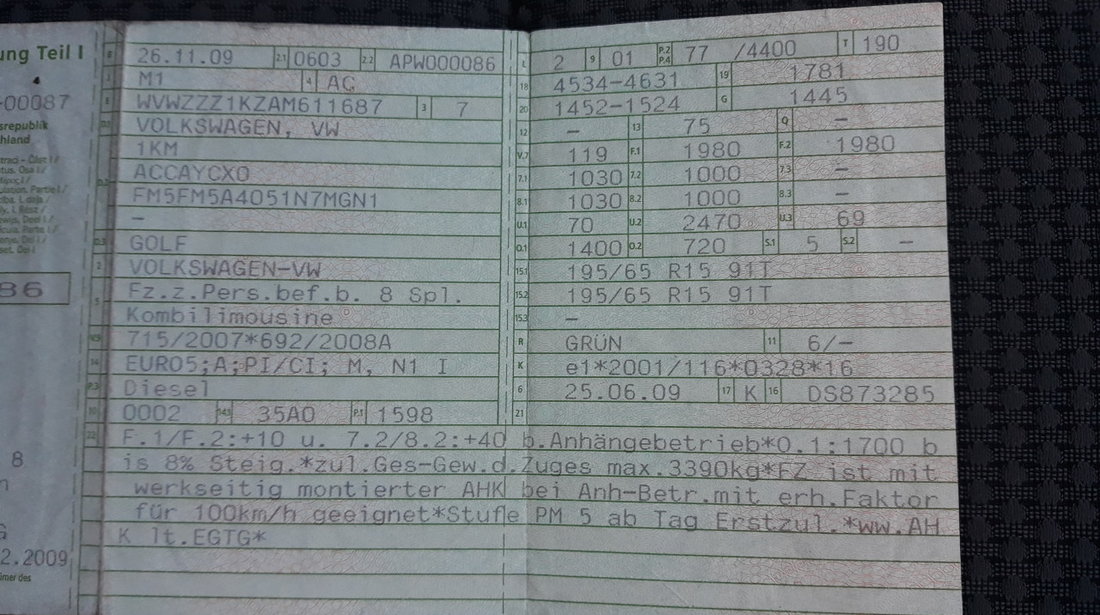 ung Teil I
4
-00087
srepublik
hland
86
8
2.2009
B 26.11.09 2.1 0603 2.2 APW000086
J M1 4 AC
E WVWZZZ1KZAM611687 3 7
D.1 VOLKSWAGEN, VW
1KM
D.2 ACCAYCX0
FM5FM5A4051N7MGN1
–
D.3 GOLF
2 VOLKSWAGEN-VW
5 Fz.z.Pers.bef.b. 8 Spl.
Kombilimousine
V.9 715/2007*692/2008A
14 EURO5;A;PI/CI; M, N1 I
P.3 Diesel
10 0002 14.1 35A0 P.1 1598
L 2 9 01 P.2 P.4 77 /4400 T 190
18 4534-4631 19 1781
20 1452-1524 G 1445
12 – 13 75 Q –
V.7 119 F.1 1980 F.2 1980
7.1 1030 7.2 1000 7.3 –
8.1 1030 8.2 1000 8.3 –
U.1 70 U.2 2470 U.3 69
O.1 1400 O.2 720 S.1 5 S.2 –
15.1 195/65 R15 91T
15.2 195/65 R15 91T
15.3 –
R GRÜN 11 6/–
K e1*2001/116*0328*16
6 25.06.09 17 K 16 DS873285
21
22 F.1/F.2:+10 u. 7.2/8.2:+40 b.Anhängebetrieb*O.1:1700 b
is 8% Steig.*zul.Ges-Gew.d.Zuges max.3390kg*FZ ist mit
werkseitig montierter AHK bei Anh-Betr.mit erh.Faktor
für 100km/h geeignet*Stufe PM 5 ab Tag Erstzul.*ww.AH
K lt.EGTG*